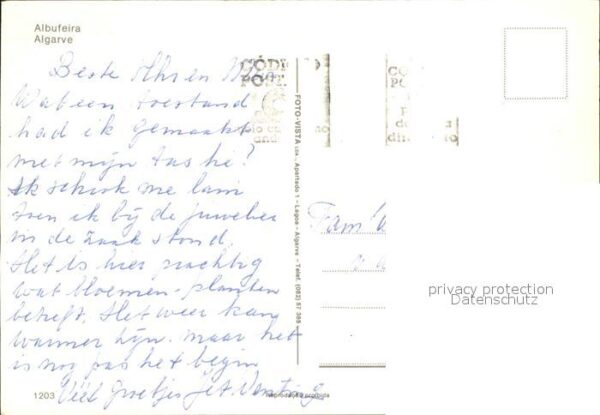 Albufeira
Algarve
Beste Mhr en Mevr
Wat een toestand
had ik gemaakt
met mijn tas hé?
Ik schrok me lam
toen ik bij de juwelier
in de zaak stond.
Het is hier prachtig
wat bloemen - planten
betreft. Het weer kan
warmer zijn. maar het
is nog pas het begin
Veel Groetjes
1203
Reprodução proibida
FOTO-VISTA Lda. Apartado 1 - Lagoa - Algarve - Telef. (082) 57 369
CÓDI O
POST
CÓ
PO
Fam
privacy protection
Datenschutz